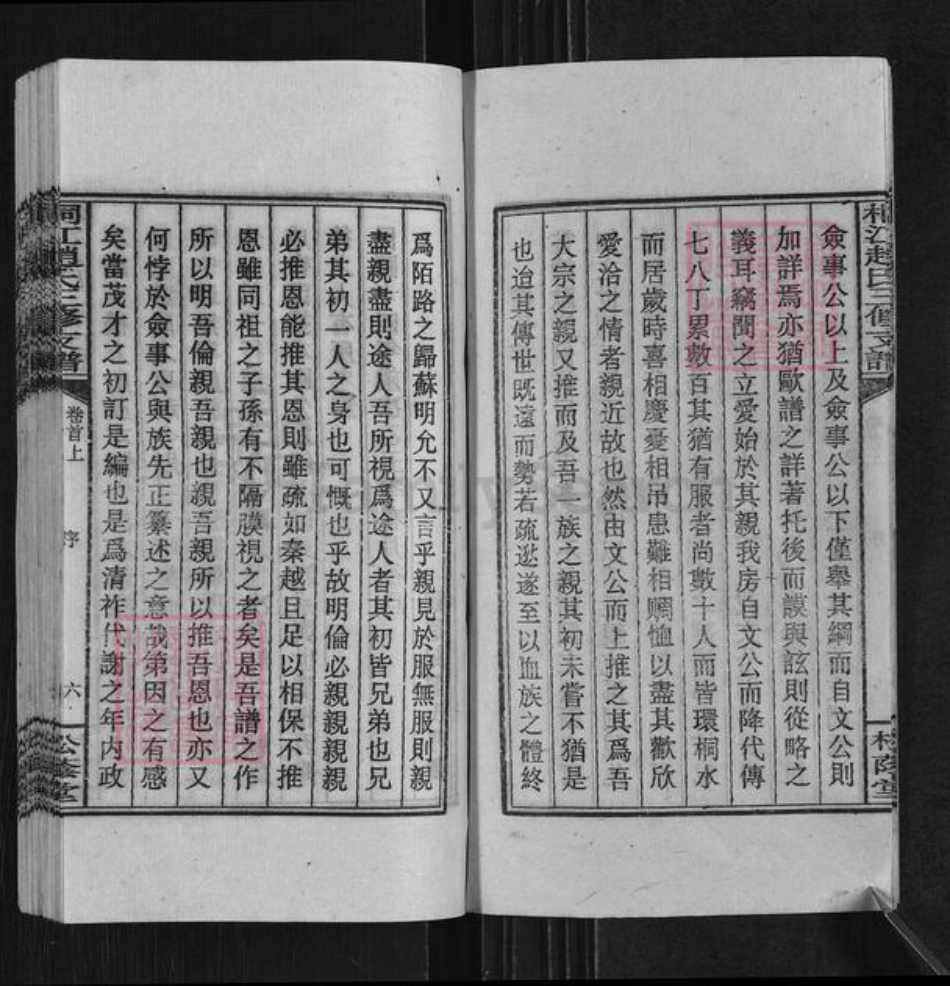 僉事公以上及僉事公以下僅舉其綱而自文公則
加詳焉亦猶歐譜之詳著托後而謨與詃則從略之
義耳竊聞之立愛始於其親我房自文公而降代傳
七八丁累數百其猶有服者尚數十人而皆環桐水
而居歲時喜相慶憂相吊患難相賙恤以盡其歡欣
愛洽之情者親近故也然由文公而上推之其爲吾
大宗之親又推而及吾一族之親其初未嘗不猶是
也迨其傳世既遠而勢若疏逖遂至以血族之體終
爲陌路之歸蘇明允不又言乎親見於服無服則親
盡親盡則途人吾所視爲途人者其初皆兄弟也兄
弟其初一人之身也可慨也乎故明倫必親親親親
必推恩能推其恩則雖疏如秦越且足以相保不推
恩雖同祖之子孫有不隔膜視之者矣是吾譜之作
所以明吾倫親吾親也親吾親所以推吾恩也亦又
何悖於僉事公與族先正纂述之意哉第因之有感
矣當茂才之初訂是編也是爲清祚代謝之年内政
桐江趙氏三修支譜
卷首上
序
六